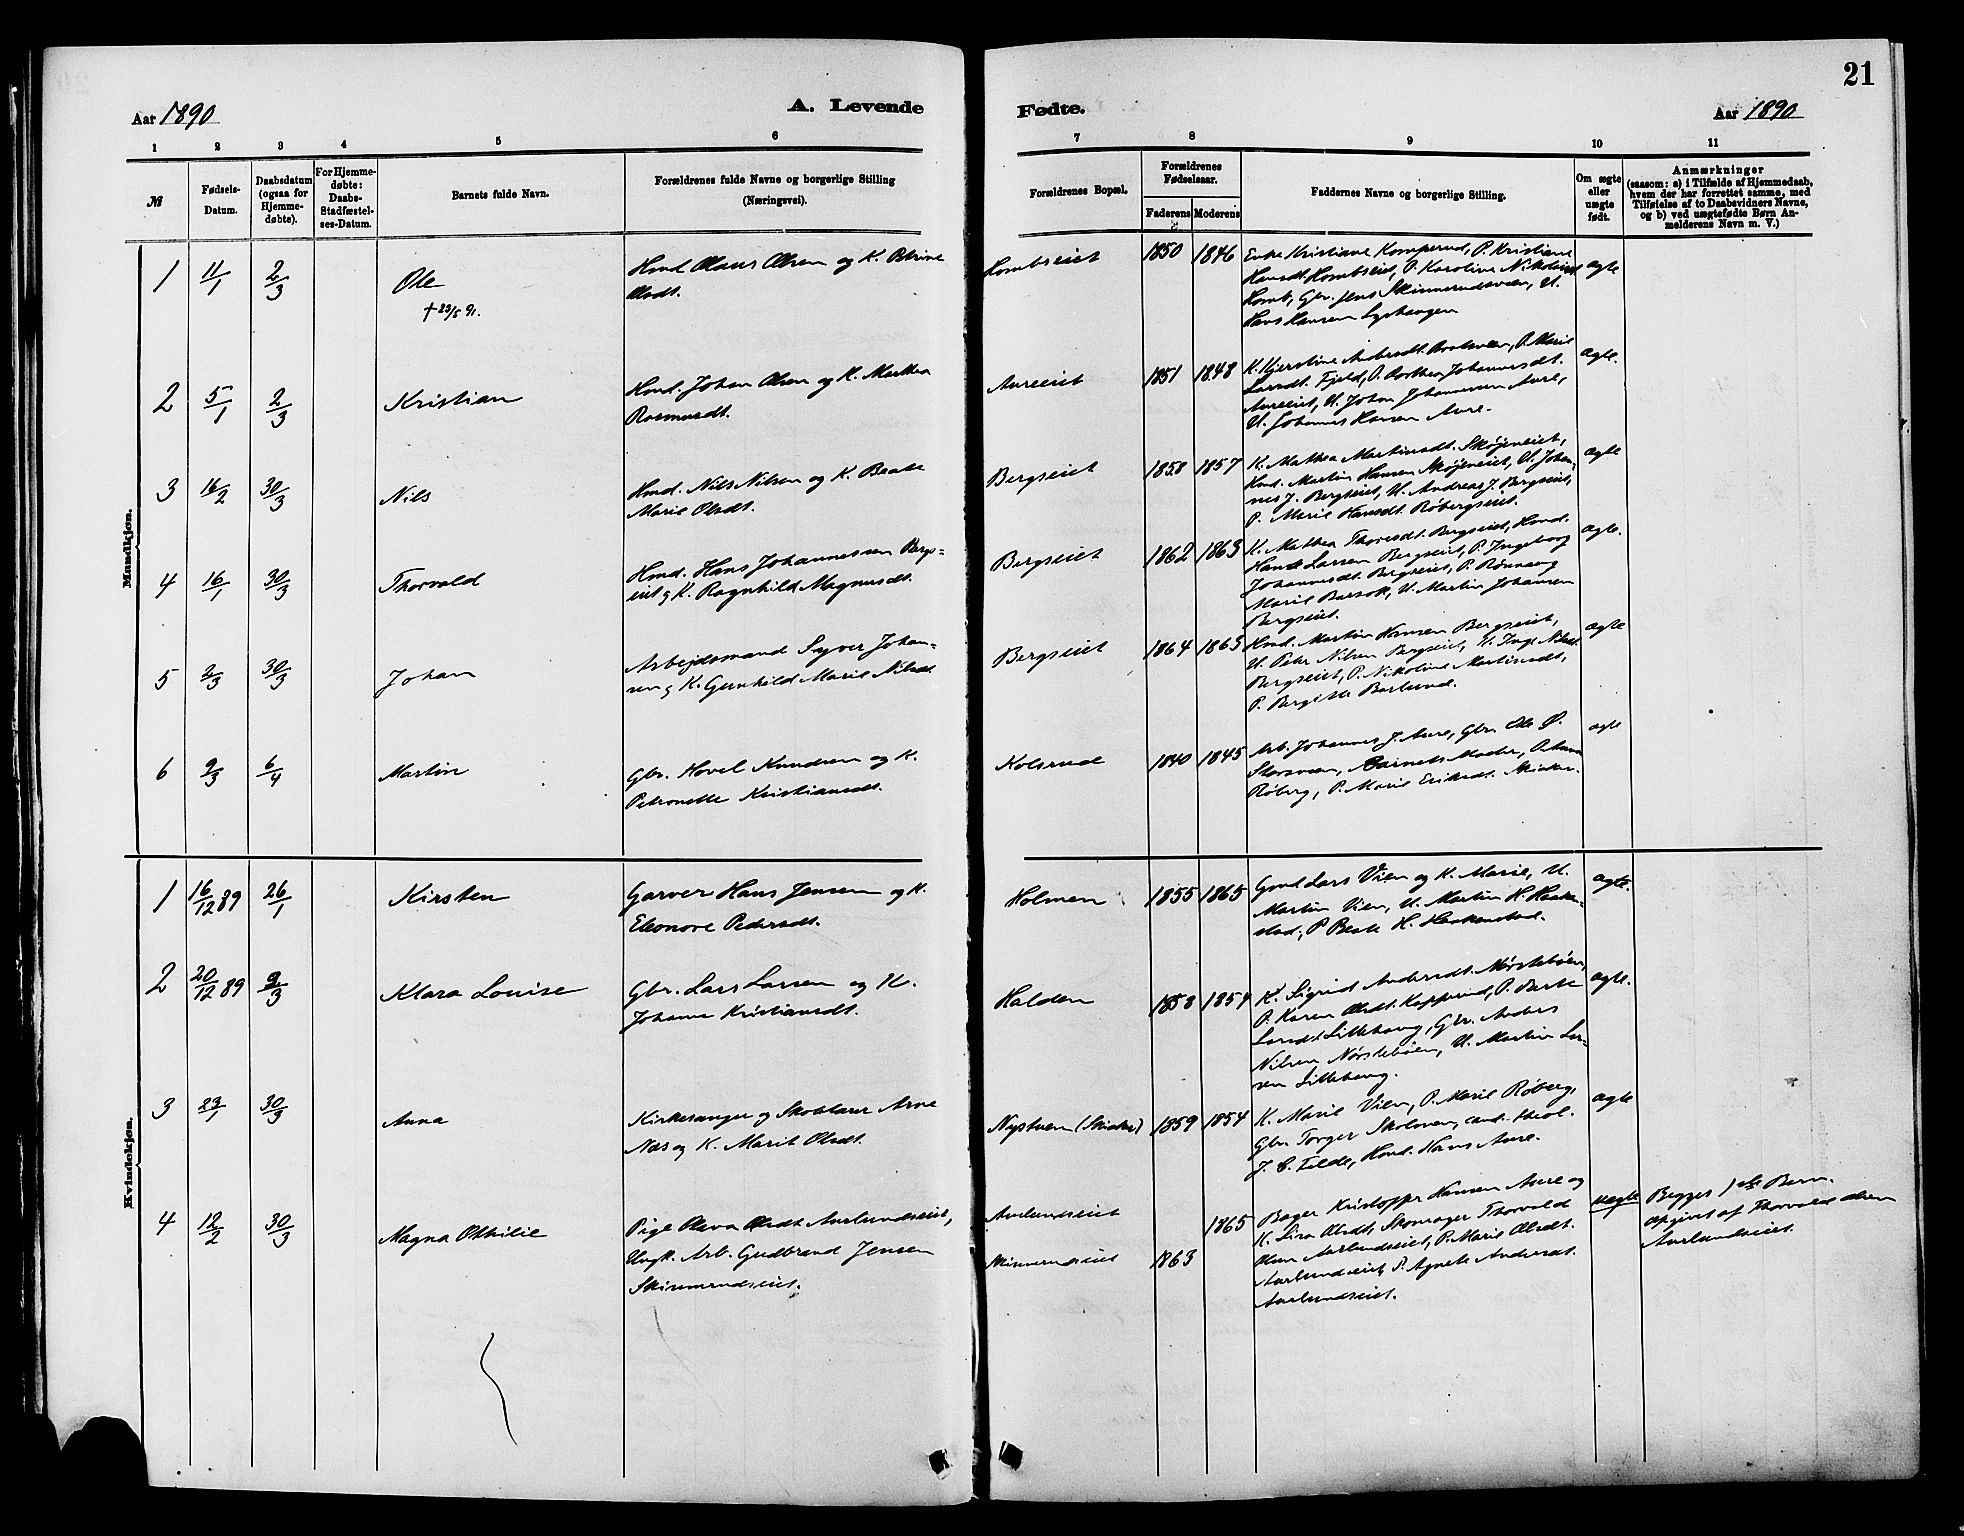 21
Aar 1890
A. Levende
Fødte.
Aar 1890
1 2 3 4 5 6 7 8 9 10 11
№
Fødsels-
Datum.
Daabsdatum
(ogsaa for
Hjemme-
døbte).
For Hjemme-
døbte:
Daabs-
Stadfæstel-
ses-Datum.
Barnets fulde Navn.
Forældrenes fulde Navne og borgerlige Stilling
(Næringsvei).
Forældrenes Bopæl.
Forældrenes
Fødselsaar.
Faderens Moderens
Faddernes Navne og borgerlige Stilling.
Om ægte
eller
uægte
født.
Anmærkninger
(saasom: a) i Tilfælde af Hjemmedaab,
hvem der har forrettet samme, med
Tilføielse af to Daabsvidners Navne,
og b) ved uægtefødte Børn An-
melderens Navn m. V.)
Mandkjøn.
1 11/1 2/3 Ole
† 23/5 91.
Hmd Olaus Olsen og K. Petrine
Olsdt.
Hombseiet 1850 1846
Enke Kristiane Komperud, P. Kristiane
Hansdt. Hombseiet, P. Karoline
Homb, Gbr. Jens Skinnerudsveen, U.
Hans Hansen
ægte
2 5/1 2/3 Kristian
Hmd. Johan Olsen og K. Marthea
Rasmusdt.
Aureeiet 1851 1848
K. Kjerstine P. Marie
Larsdt. Fjeld, P. Dorthea Johannesdt.
Aureeiet, U. Johan Johannesen Aure,
U. Johannes Hansen Aure.
ægte.
3 16/2 30/3 Nils
Hmd. Nils Nilsen og K. Beate
Marie Olsdt.
Bergseiet 1858 1857
K. Mathea Martinsdt. Skøjeneiet,
Hmd. Martin Hansen Skøjeneiet, U. Johan-
nes J. Bergseiet, U. Andreas J. Bergseiet,
P. Marie Hansdt. Røbergseiet.
ægte
4 16/1 30/3 Thorvald
Hmd. Hans Johannessen Bergs-
eiet og K. Ragnhild Magnusdt.
Bergseiet 1862 1863
K. Mathea Thoresdt. Bergseiet, Hmd.
Hans Larsen Bergseiet, P. Ingeborg
Johannesdt. Bergseiet, P. Rønnaug
Marie U. Martin Johansen
Bergseiet.
ægte.
5 2/3 30/3 Johan
Arbejdsmand Syver Johan-
sen og K. Gunhild Marie Nilsdt.
Bergseiet 1864 1863
Hmd. Martin Hansen Bergseiet,
U. Peter Nilsen Bergseiet, U. Inge
Bergseiet, P. Nikoline Martinsdt,
P. Bergitte
ægte
6 9/3 6/4 Martin
Gbr. Hovel Knudsen og K.
Petronelle Kristiansdt.
Kolsrud 1840 1845
Arb. Johannes J. Aure, Gbr. Ole
Storsveen, Barnets Moder, P. Anna
Røberg, P. Marie Eriksdt.
ægte
Kvindekjøn.
1 16/12 89 26/1 Kirsten
Garver Hans Jensen og K.
Eleonore Pedersdt.
Holmen 1855 1865
Gmd Lars Vien og K. Marie, U.
Martin Vien, U. Martin H. Haaken-
stad, P. Beate H. Haakenstad.
ægte.
2 20/12 89 9/3 Klara Louise
Gbr. Lars Larsen og K.
Johanne Kristiansdt.
Halden 1853 1854
K. Sigrid Andersdt. Nørstebøen,
P. Karen Olsdt. Kopperud, P. Berte
Larsdt. Lillehaug, Gbr. Anders
Nilsen Nørstebøen, U. Martin Lar-
sen Lillehaug.
ægte.
3 23/1 30/3 Anna
Kirkesanger og Skolelærer Arne
Næs og K. Marit Olsdt.
Nystuen 1859 1854
K. Marie Vien, P. Marie Røberg,
Gbr. Torger cand. theol.
J. C. Tilde, Hmd. Hans Aure.
ægte
4 12/2 30/3 Magna Othilie
Pige Oleva Olsdt Aurlundseiet,
Ungk. Arb. Gudbrand Jensen
Skinnerudseiet.
Aurlundseiet 1865
Skinnerudseiet 1863
Bager Kristoffer Hansen Aure og
K. Lisa Olsdt, Skomager Thorvald
Olsen Aurlundseiet, P. Marie Olsdt.
Aurlundseiet, P. Agnete Andersdt.
Aurlundseiet.
uægte
Begges 1ste Barn.
Opgivet af Thorvald Olsen
Aurlundseiet.